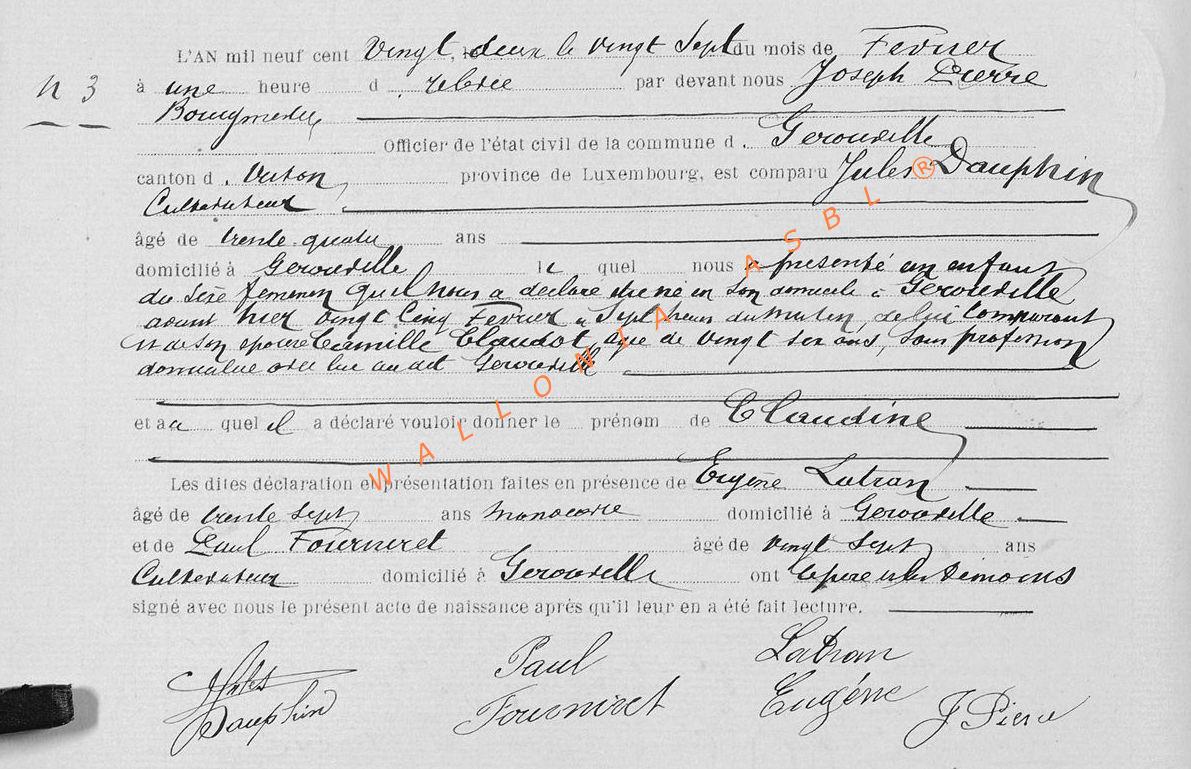 L'AN mil neuf cent Vingt, deux le vingt Sept du mois de Fevrier
n 3
à une heure d relevée par devant nous Joseph Pierre
Bourgmestre
Officier de l'état civil de la commune d. Gerouville
canton d. Virton province de Luxembourg, est comparu Jules Dauphin
Cultivateur
âgé de trente-quatre ans
domicilié à Gerouville lequel nous a présenté un enfant
du sexe feminin quel nous a déclaré être né en son domicile à Gerouville
avant hier vingt cinq Fevrier à Sept heures du matin, de lui comparant
et de son epouse Camille Claudot, age de vingt six ans, sans profession
domiciliée avec lui au dit Gerouville
et a a quel il a déclaré vouloir donner le prénom de Claudine
Les dites déclaration et présentation faites en présence de Eugène Latran
âgé de trente sept ans domicilié à Gerouville
et de Paul Fourniret âgé de vingt sept ans
Cultivateur domicilié à Gerouville ont le père et les témoins
signé avec nous le présent acte de naissance après qu'il leur en a été fait lecture.
Jules Dauphin
Paul Fourniret
Latran Eugéne
J Pierre
WALLONIA ASBL ®